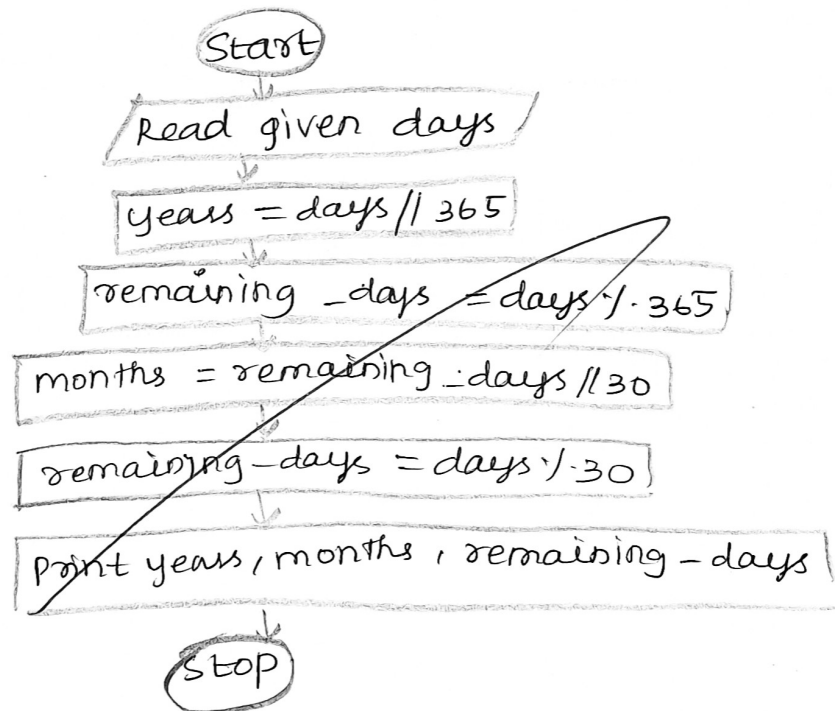 Start
Read given days
years = days // 365
remaining _days = days % 365
months = remaining _days // 30
remaining_days = days % 30
Print years, months, remaining_days
Stop